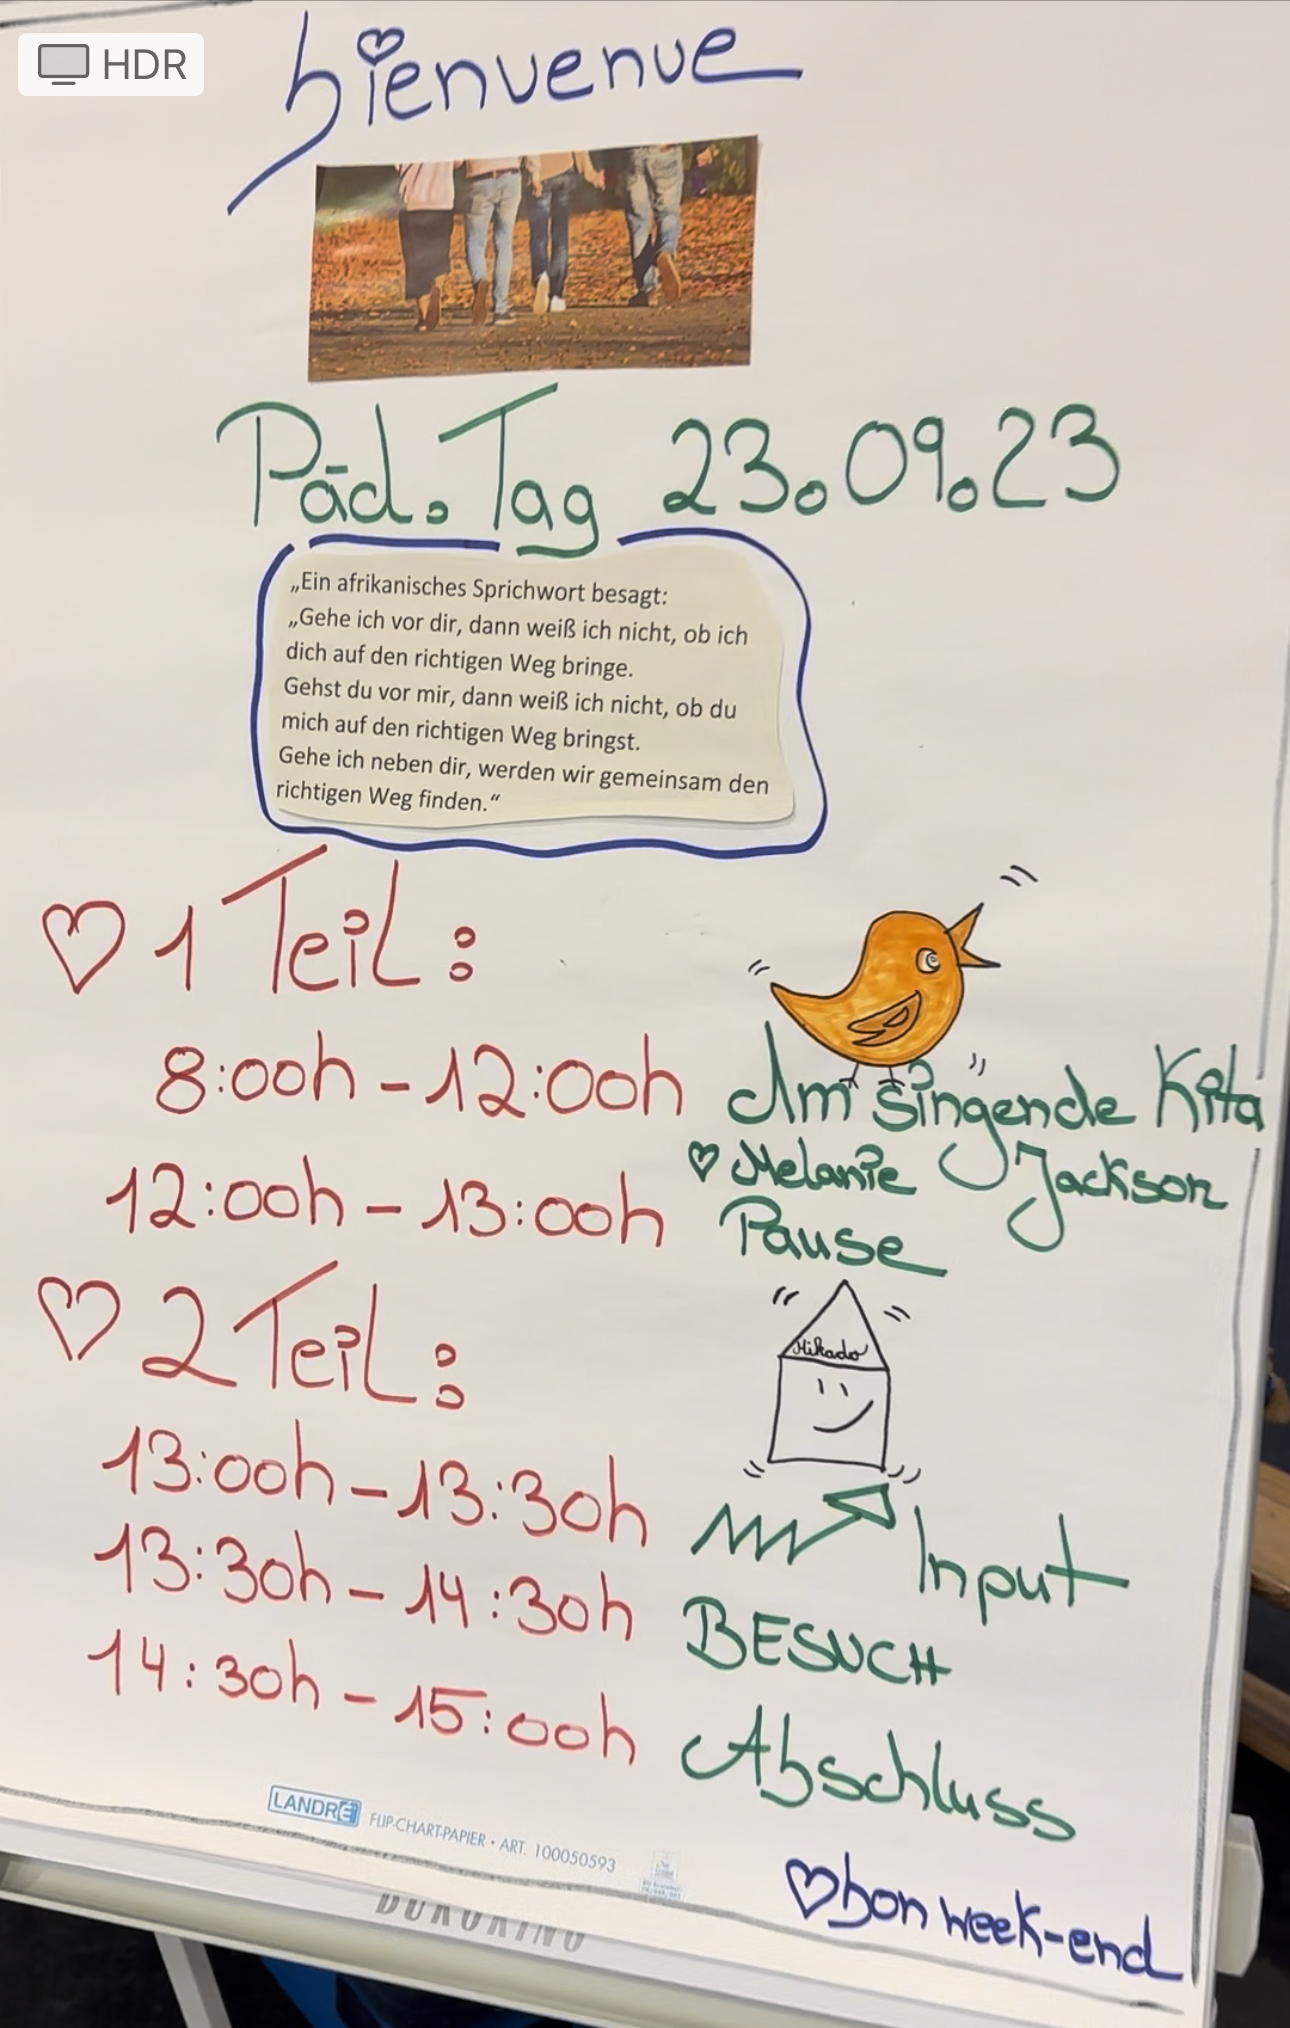 HDR
bienvenue
Päd. Tag 23.09.23
„Ein afrikanisches Sprichwort besagt:
„Gehe ich vor dir, dann weiß ich nicht, ob ich
dich auf den richtigen Weg bringe.
Gehst du vor mir, dann weiß ich nicht, ob du
mich auf den richtigen Weg bringst.
Gehe ich neben dir, werden wir gemeinsam den
richtigen Weg finden.“
1 Teil:
8:00h - 12:00h singende Kita
Melanie Jackson
12:00h - 13:00h Pause
2 Teil:
Mikado
13:00h - 13:30h Input
13:30h - 14:30h BESUCH
14:30h - 15:00h Abschluss
LANDRÉ FLIP-CHART-PAPIER • ART. 100050593
bon week-end